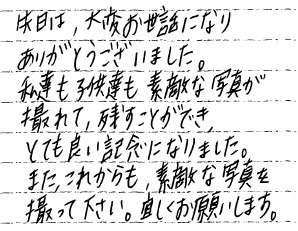 先日は,大変お世話になり
ありがとうございました。
私達も子供達も素敵な写真が
撮れて,残すことができ,
とても良い記念になりました。
また,これからも,素敵な写真を
撮って下さい。宜しくお願いします。